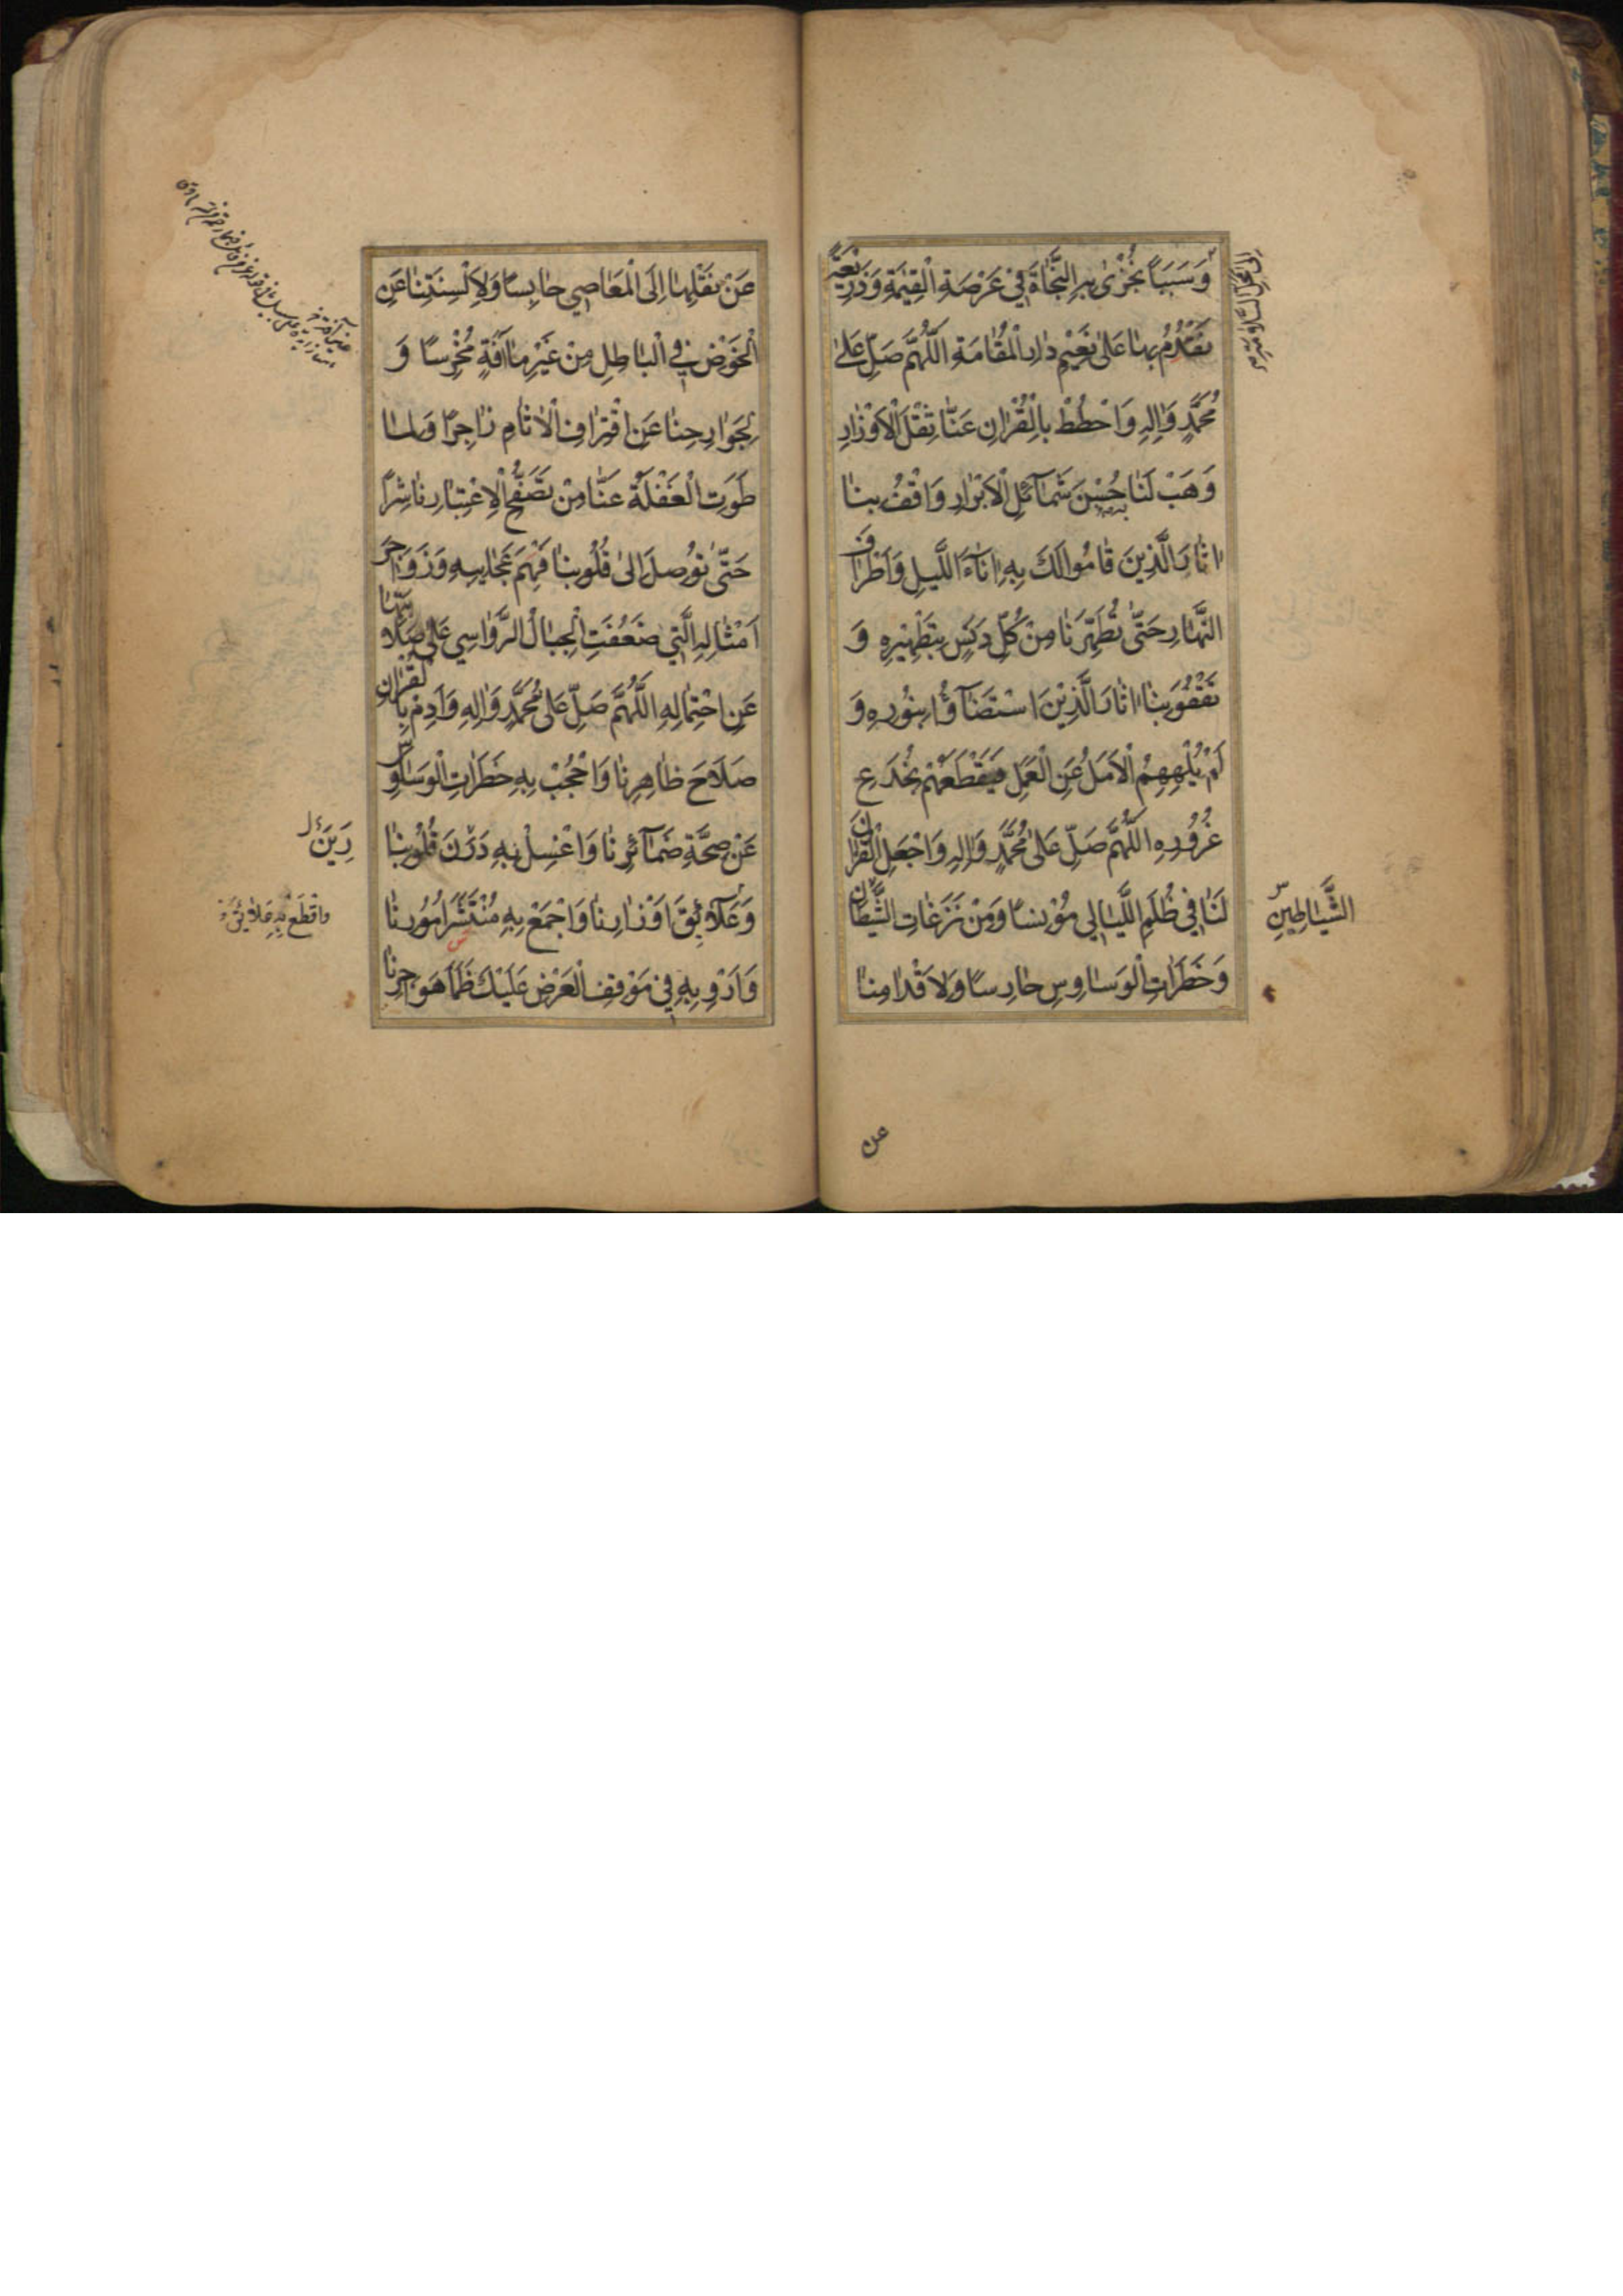 وَسَبَبًا نُجْزٰى بِهِ النَّجٰاةَ فِي عَرْصَةِ الْقِيٰمَةِ وَذَرِيْعَةً
نَقْدُمُ بِهٰا عَلٰى نَعِيْمِ دٰارِ الْمُقٰامَةِ اَللّٰهُمَّ صَلِّ عَلٰى
مُحَمَّدٍ وَاٰلِهِ وَاحْطُطْ بِالْقُرْاٰنِ عَنّٰا ثِقْلَ الْاَوْزٰارِ
وَهَبْ لَنٰا حُسْنَ شَمٰآئِلِ الْاَبْرٰارِ وَاقْفُ بِنٰا
اٰثٰارَ الَّذِينَ قٰامُوا لَكَ بِهِ اٰنٰآءَ اللَّيْلِ وَاَطْرٰافَ
النَّهٰارِ حَتّٰى تُطَهِّرَنٰا مِنْ كُلِّ دَنَسٍ بِتَطْهِيْرِهِ وَ
تَقْفُوَ بِنٰا اٰثٰارَ الَّذِيْنَ اسْتَضٰآؤُا بِنُورِهِ وَ
لَمْ يُلْهِهِمُ الْاَمَلُ عَنِ الْعَمَلِ فَيَقْطَعَهُمْ بِخُدَعِ
غُرُورِهِ اَللّٰهُمَّ صَلِّ عَلٰى مُحَمَّدٍ وَاٰلِهِ وَاجْعَلِ الْقُرْاٰنَ
لَنٰا فِي ظُلَمِ اللَّيٰالِي مُوْنِسًا وَمِنْ نَزَغٰاتِ الشَّيْطٰانِ
الشَّيٰاطِيْنِ
وَخَطَرٰاتِ الْوَسٰاوِسِ حٰارِسًا وَلِاَقْدٰامِنٰا
عن
عَنْ نَقْلِهٰا اِلَى الْمَعٰاصِي حٰابِسًا وَلِاَلْسِنَتِنٰا عَنِ
الْخَوْضِ فِي الْبٰاطِلِ مِنْ غَيْرِ مٰا اٰفَةٍ مُخْرِسًا وَ
لِجَوٰارِحِنٰا عَنِ اقْتِرٰافِ الْاٰثٰامِ زٰاجِرًا وَلِمٰا
طَوَتِ الْغَفْلَةُ عَنّٰا مِنْ تَصَفُّحِ الْاِعْتِبٰارِ نٰاشِرًا
حَتّٰى تُوصِلَ اِلٰى قُلُوبِنٰا فَهْمَ عَجٰائِبِهِ وَزَوٰاجِرَ
اَمْثٰالِهِ الَّتِي ضَعُفَتِ الْجِبٰالُ الرَّوٰاسِي عَلٰى صَلٰابَتِهٰا
عَنِ احْتِمٰالِهِ اَللّٰهُمَّ صَلِّ عَلٰى مُحَمَّدٍ وَاٰلِهِ وَاَدِمْ بِالْقُرْاٰنِ
صَلٰاحَ ظٰاهِرِنٰا وَاحْجُبْ بِهِ خَطَرٰاتِ الْوَسٰاوِسِ
عَنْ صِحَّةِ ضَمٰآئِرِنٰا وَاغْسِلْ بِهِ دَرَنَ قُلُوبِنٰا
رَيْنَ
وَعَلٰآئِقَ اَوْزٰارِنٰا وَاجْمَعْ بِهِ مُنْتَشَرَ اُمُورِنٰا
وَاقْطَعْ بِهِ عَلٰائِقَ
وَاَرْوِ بِهِ فِي مَوْقِفِ الْعَرْضِ عَلَيْكَ ظَمَأَ هَوٰاجِرِنٰا